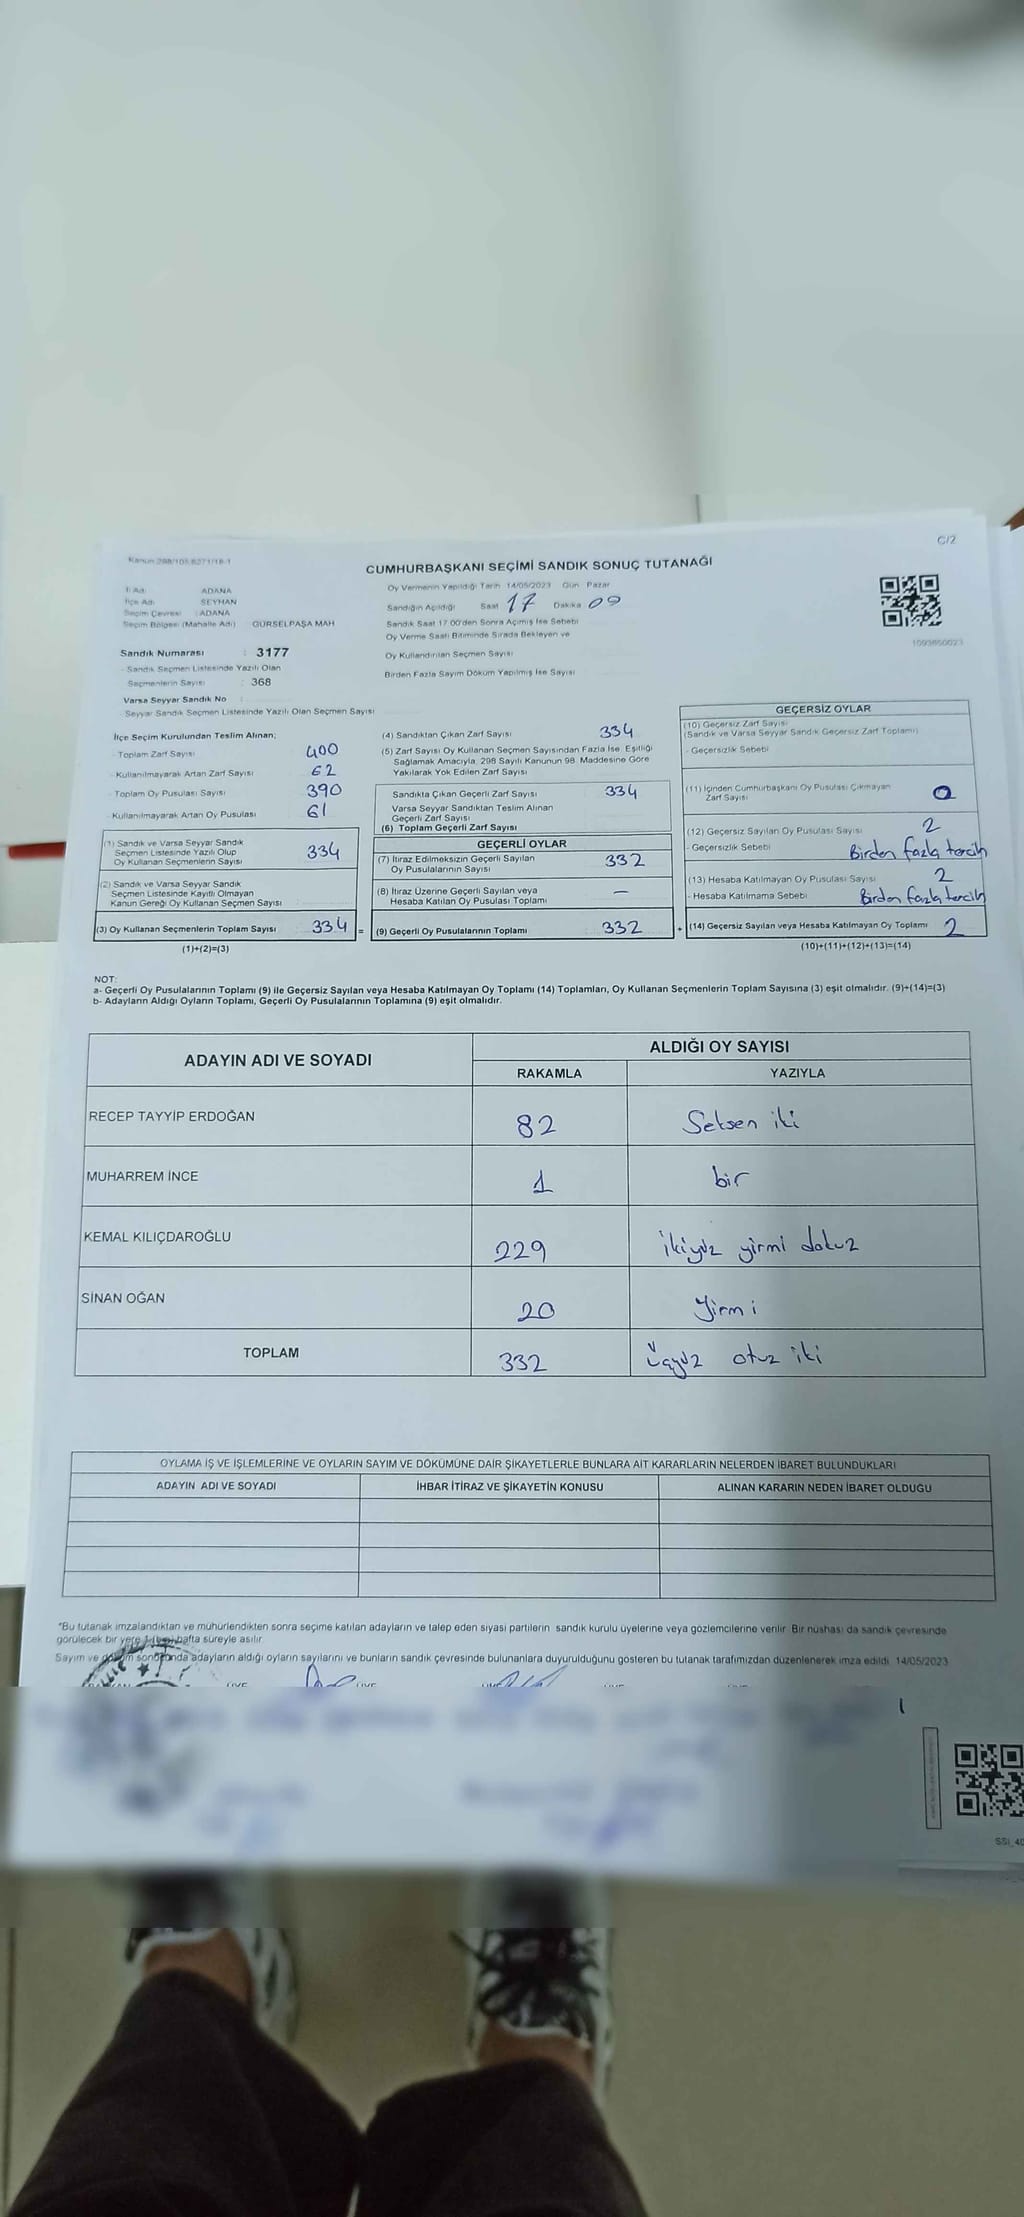 C/2
Kanun 298/105.6271/18-1
CUMHURBAŞKANI SEÇİMİ SANDIK SONUÇ TUTANAĞI
İl Adı ADANA
İlçe Adı SEYHAN
Seçim Çevresi : ADANA
Seçim Bölgesi (Mahalle Adı) GÜRSELPAŞA MAH
Sandık Numarası : 3177
- Sandık Seçmen Listesinde Yazılı Olan
Seçmenlerin Sayısı : 368
Varsa Seyyar Sandık No
- Seyyar Sandık Seçmen Listesinde Yazılı Olan Seçmen Sayısı
Oy Vermenin Yapıldığı Tarih 14/05/2023 Gün Pazar
Sandığın Açıldığı Saat 17 Dakika 09
Sandık Saat 17.00'den Sonra Açımış İse Sebebi
Oy Verme Saati Bitiminde Sırada Bekleyen ve
Oy Kullandırılan Seçmen Sayısı
Birden Fazla Sayım Döküm Yapılmış İse Sayısı
1093650023
İlçe Seçim Kurulundan Teslim Alınan;
- Toplam Zarf Sayısı 400
- Kullanılmayarak Artan Zarf Sayısı 62
- Toplam Oy Pusulası Sayısı 390
- Kullanılmayarak Artan Oy Pusulası 61
(1) Sandık ve Varsa Seyyar Sandık
Seçmen Listesinde Yazılı Olup
Oy Kullanan Seçmenlerin Sayısı 334
(2) Sandık ve Varsa Seyyar Sandık
Seçmen Listesinde Kayıtlı Olmayan
Kanun Gereği Oy Kullanan Seçmen Sayısı
(3) Oy Kullanan Seçmenlerin Toplam Sayısı 334 =
(1)+(2)=(3)
(4) Sandıktan Çıkan Zarf Sayısı 334
(5) Zarf Sayısı Oy Kullanan Seçmen Sayısından Fazla İse, Eşitliği
Sağlamak Amacıyla, 298 Sayılı Kanunun 98. Maddesine Göre
Yakılarak Yok Edilen Zarf Sayısı
Sandıkta Çıkan Geçerli Zarf Sayısı 334
Varsa Seyyar Sandıktan Teslim Alınan
Geçerli Zarf Sayısı
(6) Toplam Geçerli Zarf Sayısı
GEÇERLİ OYLAR
(7) İtiraz Edilmeksizin Geçerli Sayılan
Oy Pusulalarının Sayısı 332
(8) İtiraz Üzerine Geçerli Sayılan veya
Hesaba Katılan Oy Pusulası Toplamı —
(9) Geçerli Oy Pusulalarının Toplamı 332 +
GEÇERSİZ OYLAR
(10) Geçersiz Zarf Sayısı
(Sandık ve Varsa Seyyar Sandık Geçersiz Zarf Toplamı)
- Geçersizlik Sebebi
(11) İçinden Cumhurbaşkanı Oy Pusulası Çıkmayan
Zarf Sayısı 0
(12) Geçersiz Sayılan Oy Pusulası Sayısı 2
- Geçersizlik Sebebi Birden fazla tercih
(13) Hesaba Katılmayan Oy Pusulası Sayısı 2
- Hesaba Katılmama Sebebi Birden fazla tercih
(14) Geçersiz Sayılan veya Hesaba Katılmayan Oy Toplamı 2
(10)+(11)+(12)+(13)=(14)
NOT:
a- Geçerli Oy Pusulalarının Toplamı (9) ile Geçersiz Sayılan veya Hesaba Katılmayan Oy Toplamı (14) Toplamları, Oy Kullanan Seçmenlerin Toplam Sayısına (3) eşit olmalıdır. (9)+(14)=(3)
b- Adayların Aldığı Oyların Toplamı, Geçerli Oy Pusulalarının Toplamına (9) eşit olmalıdır.
ADAYIN ADI VE SOYADI ALDIĞI OY SAYISI
RAKAMLA YAZIYLA
RECEP TAYYİP ERDOĞAN 82 Seksen iki
MUHARREM İNCE 1 bir
KEMAL KILIÇDAROĞLU 229 ikiyüz yirmi dokuz
SİNAN OĞAN 20 Yirmi
TOPLAM 332 Üçyüz otuz iki
OYLAMA İŞ VE İŞLEMLERİNE VE OYLARIN SAYIM VE DÖKÜMÜNE DAİR ŞİKAYETLERLE BUNLARA AİT KARARLARIN NELERDEN İBARET BULUNDUKLARI
ADAYIN ADI VE SOYADI İHBAR İTİRAZ VE ŞİKAYETİN KONUSU ALINAN KARARIN NEDEN İBARET OLDUĞU
*Bu tutanak imzalandıktan ve mühürlendikten sonra seçime katılan adayların ve talep eden siyasi partilerin sandık kurulu üyelerine veya gözlemcilerine verilir. Bir nüshası da sandık çevresinde
görülecek bir yere 1 (bir) hafta süreyle asılır.
Sayım ve döküm sonucunda adayların aldığı oyların sayılarını ve bunların sandık çevresinde bulunanlara duyurulduğunu gösteren bu tutanak tarafımızdan düzenlenerek imza edildi. 14/05/2023